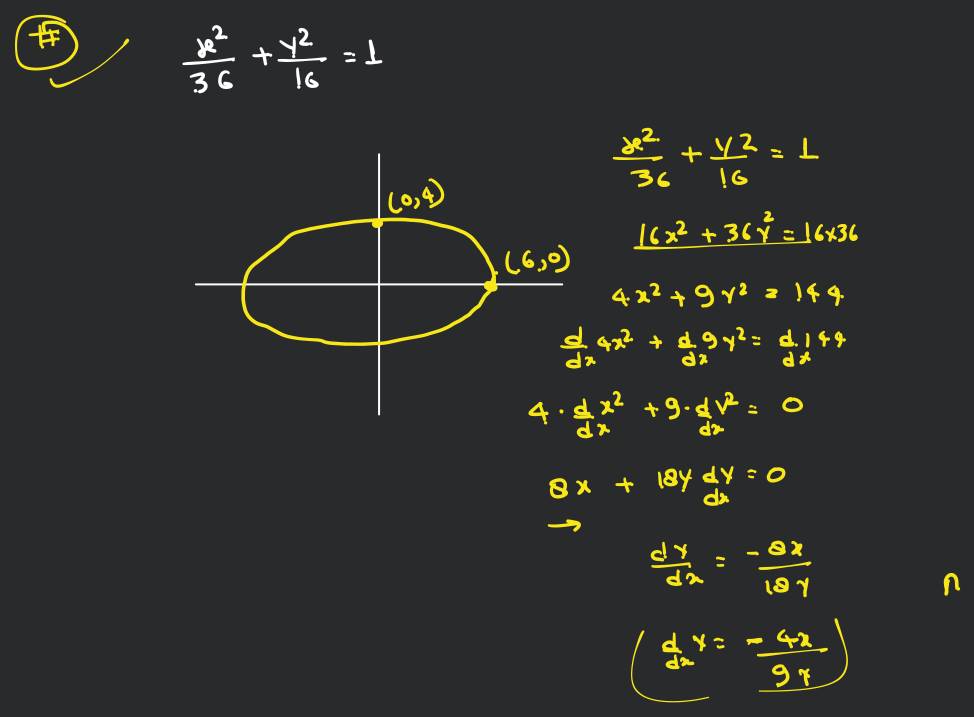 #
x²/36 + y²/16 = 1
(0,4)
(6,0)
x²/36 + y²/16 = 1
16x² + 36y² = 16x36
4x² + 9y² = 144
d/dx 4x² + d/dx 9y² = d/dx 144
4 · d/dx x² + 9 · d/dx y² = 0
8x + 18y dy/dx = 0
→
dy/dx = -8x/18y
d/dx y = -4x/9y
n